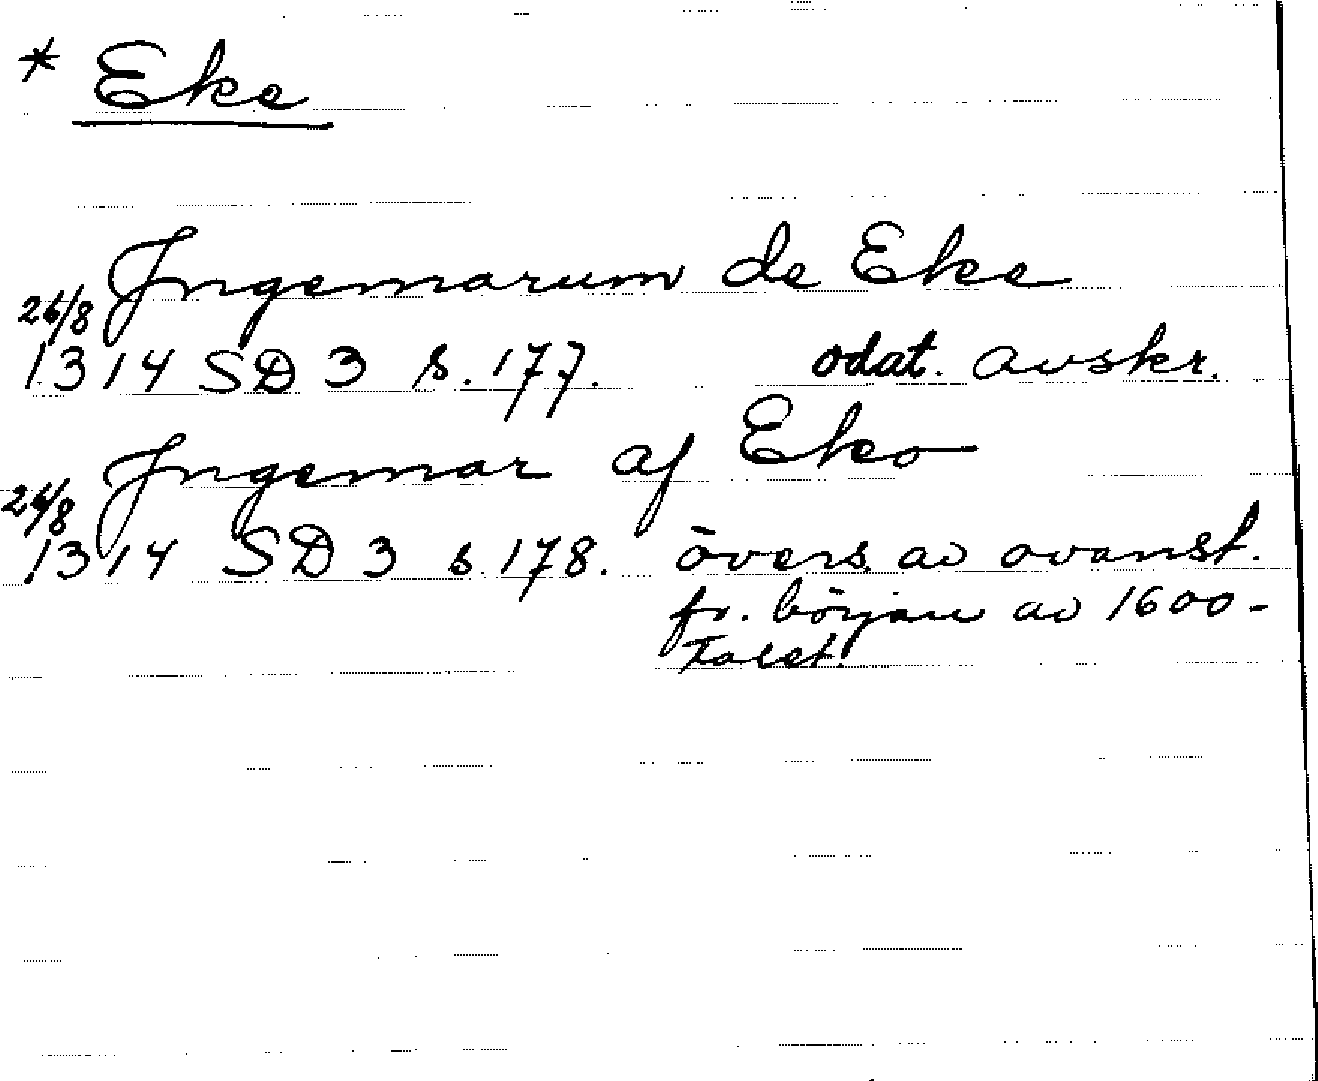 * Eke
Ingemarum de Eke
26/8 1314 SD 3 s. 177. odat. avskr.
Ingemar af Eko
26/8 1314 SD 3 s. 178. övers. av ovanst.
fr. början av 1600-
talet.